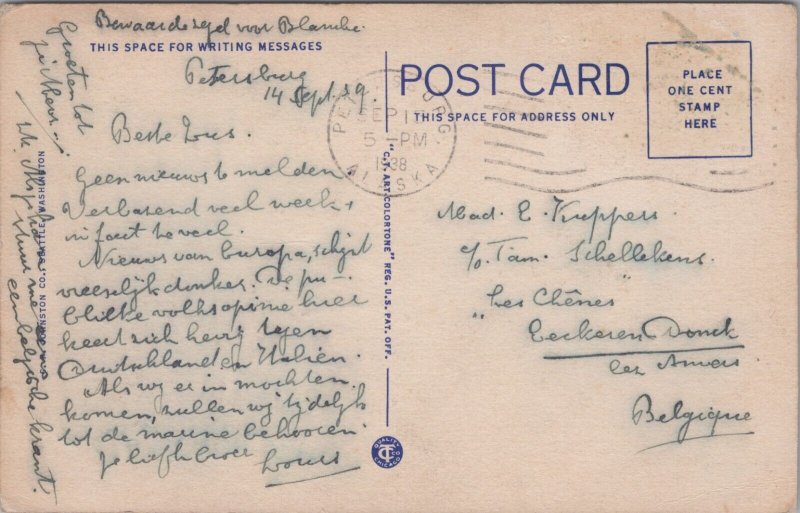 Bewaar de segel voor Blanche.
THIS SPACE FOR WRITING MESSAGES
Petersburg
14 Sept. 39.
Beste Zus.
Geen nieuws te melden.
Verbazend veel werk,
in fait te veel.
Nieuws van Europa, schijnt
vreeselijk donker. De pu-
blieke volksopinie hier
keert zich hevig tegen
Duitschland en Italien.
Als wij er in mochten
komen, zullen wij tijdelijk
tot de marine behooren.
Je liefh. broer
Louis
Groeten tot
stuur me eens
een belgische krant.
JOHNSTON CO., SEATTLE, WASHINGTON
"C.T. ART-COLORTONE" REG. U.S. PAT. OFF.
QUALITY CT CHICAGO
POST CARD
THIS SPACE FOR ADDRESS ONLY
PLACE
ONE CENT
STAMP
HERE
PETERSBURG
SEP
5-PM
1938
ALASKA
Mad. E. Kuppers.
c/o Fam. Schellekens.
"Les Chênes"
Eeckeren Donck
lez Anvers
Belgique